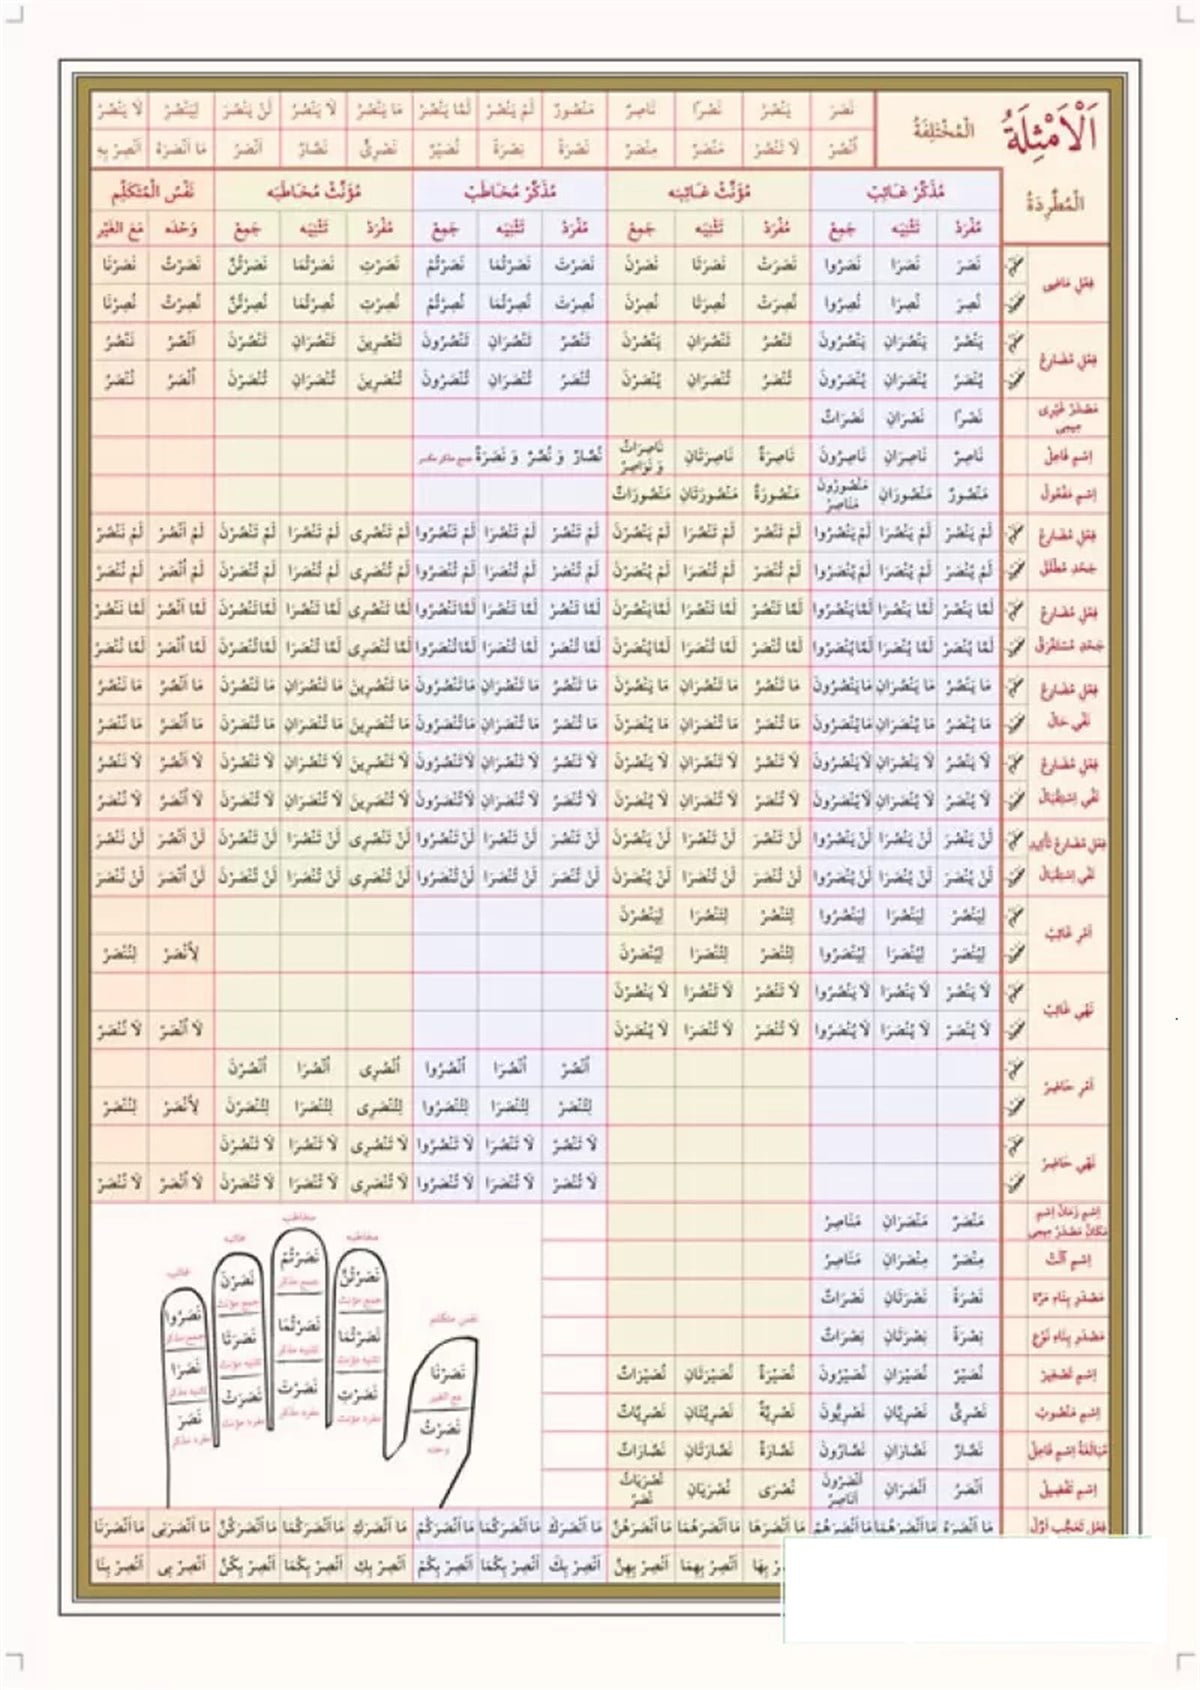 اَلْاَمْثِلَةُ
الْمُخْتَلِفَةُ
نَصَرَ يَنْصُرُ نَصْرًا نَاصِرٌ مَنْصُورٌ لَمْ يَنْصُرْ لَمَّا يَنْصُرْ مَا يَنْصُرُ لَا يَنْصُرُ لَنْ يَنْصُرَ لِيَنْصُرْ لَا يَنْصُرْ
اُنْصُرْ لَا تَنْصُرْ مَنْصَرٌ مِنْصَرٌ نَصْرَةً نِصْرَةً نُصَيْرٌ نَصْرِىٌّ نَصَّارٌ اَنْصَرُ مَا اَنْصَرَهُ اَنْصِرْ بِهِ
الْمُطَّرِدَةُ
مُذَكَّرْ غَائِبْ مُؤَنَّثْ غَائِبَه مُذَكَّرْ مُخَاطَبْ مُؤَنَّثْ مُخَاطَبَه نَفْسُ الْمُتَكَلِّمِ
مُفْرَدْ تَثْنِيَه جَمِعْ مُفْرَدْ تَثْنِيَه جَمِعْ مُفْرَدْ تَثْنِيَه جَمِعْ مُفْرَدْ تَثْنِيَه جَمِعْ وَحْدَه مَعَ الْغَيْرِ
فِعْلِ مَاضِى
نَصَرَ نَصَرَا نَصَرُوا نَصَرَتْ نَصَرَتَا نَصَرْنَ نَصَرْتَ نَصَرْتُمَا نَصَرْتُمْ نَصَرْتِ نَصَرْتُمَا نَصَرْتُنَّ نَصَرْتُ نَصَرْنَا
نُصِرَ نُصِرَا نُصِرُوا نُصِرَتْ نُصِرَتَا نُصِرْنَ نُصِرْتَ نُصِرْتُمَا نُصِرْتُمْ نُصِرْتِ نُصِرْتُمَا نُصِرْتُنَّ نُصِرْتُ نُصِرْنَا
فِعْلِ مُضَارِعْ
يَنْصُرُ يَنْصُرَانِ يَنْصُرُونَ تَنْصُرُ تَنْصُرَانِ يَنْصُرْنَ تَنْصُرُ تَنْصُرَانِ تَنْصُرُونَ تَنْصُرِينَ تَنْصُرَانِ تَنْصُرْنَ اَنْصُرُ نَنْصُرُ
يُنْصَرُ يُنْصَرَانِ يُنْصَرُونَ تُنْصَرُ تُنْصَرَانِ يُنْصَرْنَ تُنْصَرُ تُنْصَرَانِ تُنْصَرُونَ تُنْصَرِينَ تُنْصَرَانِ تُنْصَرْنَ اُنْصَرُ نُنْصَرُ
مَصْدَرْ غَيْرِى مِيمِى نَصْرًا نَصْرَانِ نَصْرَاتٌ
اِسْمِ فَاعِلْ نَاصِرٌ نَاصِرَانِ نَاصِرُونَ نَاصِرَةٌ نَاصِرَتَانِ نَاصِرَاتٌ وَ نَوَاصِرُ نُصَّارٌ وَ نُصَّرٌ وَ نَصَرَةٌ جمع مذكر مكسر
اِسْمِ مَفْعُولْ مَنْصُورٌ مَنْصُورَانِ مَنْصُورُونَ مَنَاصِرُ مَنْصُورَةٌ مَنْصُورَتَانِ مَنْصُورَاتٌ
فِعْلِ مُضَارِعْ جَحْدِ مُطْلَقْ
لَمْ يَنْصُرْ لَمْ يَنْصُرَا لَمْ يَنْصُرُوا لَمْ تَنْصُرْ لَمْ تَنْصُرَا لَمْ يَنْصُرْنَ لَمْ تَنْصُرْ لَمْ تَنْصُرَا لَمْ تَنْصُرُوا لَمْ تَنْصُرِى لَمْ تَنْصُرَا لَمْ تَنْصُرْنَ لَمْ اَنْصُرْ لَمْ نَنْصُرْ
لَمْ يُنْصَرْ لَمْ يُنْصَرَا لَمْ يُنْصَرُوا لَمْ تُنْصَرْ لَمْ تُنْصَرَا لَمْ يُنْصَرْنَ لَمْ تُنْصَرْ لَمْ تُنْصَرَا لَمْ تُنْصَرُوا لَمْ تُنْصَرِى لَمْ تُنْصَرَا لَمْ تُنْصَرْنَ لَمْ اُنْصَرْ لَمْ نُنْصَرْ
فِعْلِ مُضَارِعْ جَحْدِ مُسْتَغْرَقْ
لَمَّا يَنْصُرْ لَمَّا يَنْصُرَا لَمَّا يَنْصُرُوا لَمَّا تَنْصُرْ لَمَّا تَنْصُرَا لَمَّا يَنْصُرْنَ لَمَّا تَنْصُرْ لَمَّا تَنْصُرَا لَمَّا تَنْصُرُوا لَمَّا تَنْصُرِى لَمَّا تَنْصُرَا لَمَّا تَنْصُرْنَ لَمَّا اَنْصُرْ لَمَّا نَنْصُرْ
لَمَّا يُنْصَرْ لَمَّا يُنْصَرَا لَمَّا يُنْصَرُوا لَمَّا تُنْصَرْ لَمَّا تُنْصَرَا لَمَّا يُنْصَرْنَ لَمَّا تُنْصَرْ لَمَّا تُنْصَرَا لَمَّا تُنْصَرُوا لَمَّا تُنْصَرِى لَمَّا تُنْصَرَا لَمَّا تُنْصَرْنَ لَمَّا اُنْصَرْ لَمَّا نُنْصَرْ
فِعْلِ مُضَارِعْ نَفْىِ حَالْ
مَا يَنْصُرُ مَا يَنْصُرَانِ مَا يَنْصُرُونَ مَا تَنْصُرُ مَا تَنْصُرَانِ مَا يَنْصُرْنَ مَا تَنْصُرُ مَا تَنْصُرَانِ مَا تَنْصُرُونَ مَا تَنْصُرِينَ مَا تَنْصُرَانِ مَا تَنْصُرْنَ مَا اَنْصُرُ مَا نَنْصُرُ
مَا يُنْصَرُ مَا يُنْصَرَانِ مَا يُنْصَرُونَ مَا تُنْصَرُ مَا تُنْصَرَانِ مَا يُنْصَرْنَ مَا تُنْصَرُ مَا تُنْصَرَانِ مَا تُنْصَرُونَ مَا تُنْصَرِينَ مَا تُنْصَرَانِ مَا تُنْصَرْنَ مَا اُنْصَرُ مَا نُنْصَرُ
فِعْلِ مُضَارِعْ نَفْىِ اِسْتِقْبَالْ
لَا يَنْصُرُ لَا يَنْصُرَانِ لَا يَنْصُرُونَ لَا تَنْصُرُ لَا تَنْصُرَانِ لَا يَنْصُرْنَ لَا تَنْصُرُ لَا تَنْصُرَانِ لَا تَنْصُرُونَ لَا تَنْصُرِينَ لَا تَنْصُرَانِ لَا تَنْصُرْنَ لَا اَنْصُرُ لَا نَنْصُرُ
لَا يُنْصَرُ لَا يُنْصَرَانِ لَا يُنْصَرُونَ لَا تُنْصَرُ لَا تُنْصَرَانِ لَا يُنْصَرْنَ لَا تُنْصَرُ لَا تُنْصَرَانِ لَا تُنْصَرُونَ لَا تُنْصَرِينَ لَا تُنْصَرَانِ لَا تُنْصَرْنَ لَا اُنْصَرُ لَا نُنْصَرُ
فِعْلِ مُضَارِعْ تَأْكِيدِ نَفْىِ اِسْتِقْبَالْ
لَنْ يَنْصُرَ لَنْ يَنْصُرَا لَنْ يَنْصُرُوا لَنْ تَنْصُرَ لَنْ تَنْصُرَا لَنْ يَنْصُرْنَ لَنْ تَنْصُرَ لَنْ تَنْصُرَا لَنْ تَنْصُرُوا لَنْ تَنْصُرِى لَنْ تَنْصُرَا لَنْ تَنْصُرْنَ لَنْ اَنْصُرَ لَنْ نَنْصُرَ
لَنْ يُنْصَرَ لَنْ يُنْصَرَا لَنْ يُنْصَرُوا لَنْ تُنْصَرَ لَنْ تُنْصَرَا لَنْ يُنْصَرْنَ لَنْ تُنْصَرَ لَنْ تُنْصَرَا لَنْ تُنْصَرُوا لَنْ تُنْصَرِى لَنْ تُنْصَرَا لَنْ تُنْصَرْنَ لَنْ اُنْصَرَ لَنْ نُنْصَرَ
اَمْرِ غَائِبْ
لِيَنْصُرْ لِيَنْصُرَا لِيَنْصُرُوا لِتَنْصُرْ لِتَنْصُرَا لِيَنْصُرْنَ
لِيُنْصَرْ لِيُنْصَرَا لِيُنْصَرُوا لِتُنْصَرْ لِتُنْصَرَا لِيُنْصَرْنَ لِاُنْصَرْ لِنُنْصَرْ
نَهْىِ غَائِبْ
لَا يَنْصُرْ لَا يَنْصُرَا لَا يَنْصُرُوا لَا تَنْصُرْ لَا تَنْصُرَا لَا يَنْصُرْنَ
لَا يُنْصَرْ لَا يُنْصَرَا لَا يُنْصَرُوا لَا تُنْصَرْ لَا تُنْصَرَا لَا يُنْصَرْنَ لَا اُنْصَرْ لَا نُنْصَرْ
اَمْرِ حَاضِرْ
اُنْصُرْ اُنْصُرَا اُنْصُرُوا اُنْصُرِى اُنْصُرَا اُنْصُرْنَ
لِتُنْصَرْ لِتُنْصَرَا لِتُنْصَرُوا لِتُنْصَرِى لِتُنْصَرَا لِتُنْصَرْنَ لِاُنْصَرْ لِنُنْصَرْ
نَهْىِ حَاضِرْ
لَا تَنْصُرْ لَا تَنْصُرَا لَا تَنْصُرُوا لَا تَنْصُرِى لَا تَنْصُرَا لَا تَنْصُرْنَ
لَا تُنْصَرْ لَا تُنْصَرَا لَا تُنْصَرُوا لَا تُنْصَرِى لَا تُنْصَرَا لَا تُنْصَرْنَ لَا اُنْصَرْ لَا نُنْصَرْ
اِسْمِ زَمَانْ اِسْمِ مَكَانْ مَصْدَرْ مِيمِى مَنْصَرٌ مَنْصَرَانِ مَنَاصِرُ
اِسْمِ آلَتْ مِنْصَرٌ مِنْصَرَانِ مَنَاصِرُ
مَصْدَرِ بِنَاءِ مَرَّه نَصْرَةً نَصْرَتَانِ نَصَرَاتٌ
مَصْدَرِ بِنَاءِ نَوْعْ نِصْرَةً نِصْرَتَانِ نِصْرَاتٌ
اِسْمِ تَصْغِيرْ نُصَيْرٌ نُصَيْرَانِ نُصَيْرُونَ نُصَيْرَةٌ نُصَيْرَتَانِ نُصَيْرَاتٌ
اِسْمِ مَنْسُوبْ نَصْرِىٌّ نَصْرِيَّانِ نَصْرِيُّونَ نَصْرِيَّةٌ نَصْرِيَّتَانِ نَصْرِيَّاتٌ
مُبَالَغَهٔ اِسْمِ فَاعِلْ نَصَّارٌ نَصَّارَانِ نَصَّارُونَ نَصَّارَةٌ نَصَّارَتَانِ نَصَّارَاتٌ
اِسْمِ تَفْضِيلْ اَنْصَرُ اَنْصَرَانِ اَنْصَرُونَ اَنَاصِرُ نُصْرَى نُصْرَيَانِ نُصْرَيَاتٌ نُصَرٌ
فِعْلِ تَعَجُّبِ اَوَّلْ مَا اَنْصَرَهُ مَا اَنْصَرَهُمَا مَا اَنْصَرَهُمْ مَا اَنْصَرَهَا مَا اَنْصَرَهُمَا مَا اَنْصَرَهُنَّ مَا اَنْصَرَكَ مَا اَنْصَرَكُمَا مَا اَنْصَرَكُمْ مَا اَنْصَرَكِ مَا اَنْصَرَكُمَا مَا اَنْصَرَكُنَّ مَا اَنْصَرَنِى مَا اَنْصَرَنَا
بِهَا اَنْصِرْ بِهِمَا اَنْصِرْ بِهِنَّ اَنْصِرْ بِكَ اَنْصِرْ بِكُمَا اَنْصِرْ بِكُمْ اَنْصِرْ بِكِ اَنْصِرْ بِكُمَا اَنْصِرْ بِكُنَّ اَنْصِرْ بِى اَنْصِرْ بِنَا
نفس متكلم
نَصَرْنَا
مع الغير
نَصَرْتُ
وحده
مخاطبه
نَصَرْتُنَّ
جمع مؤنث
نَصَرْتُمَا
تثنيه مؤنث
نَصَرْتِ
مفرد مؤنث
مخاطب
نَصَرْتُمْ
جمع مذكر
نَصَرْتُمَا
تثنيه مذكر
نَصَرْتَ
مفرد مذكر
غائبه
نَصَرْنَ
جمع مؤنث
نَصَرَتَا
تثنيه مؤنث
نَصَرَتْ
مفرد مؤنث
غائب
نَصَرُوا
جمع مذكر
نَصَرَا
تثنيه مذكر
نَصَرَ
مفرد مذكر